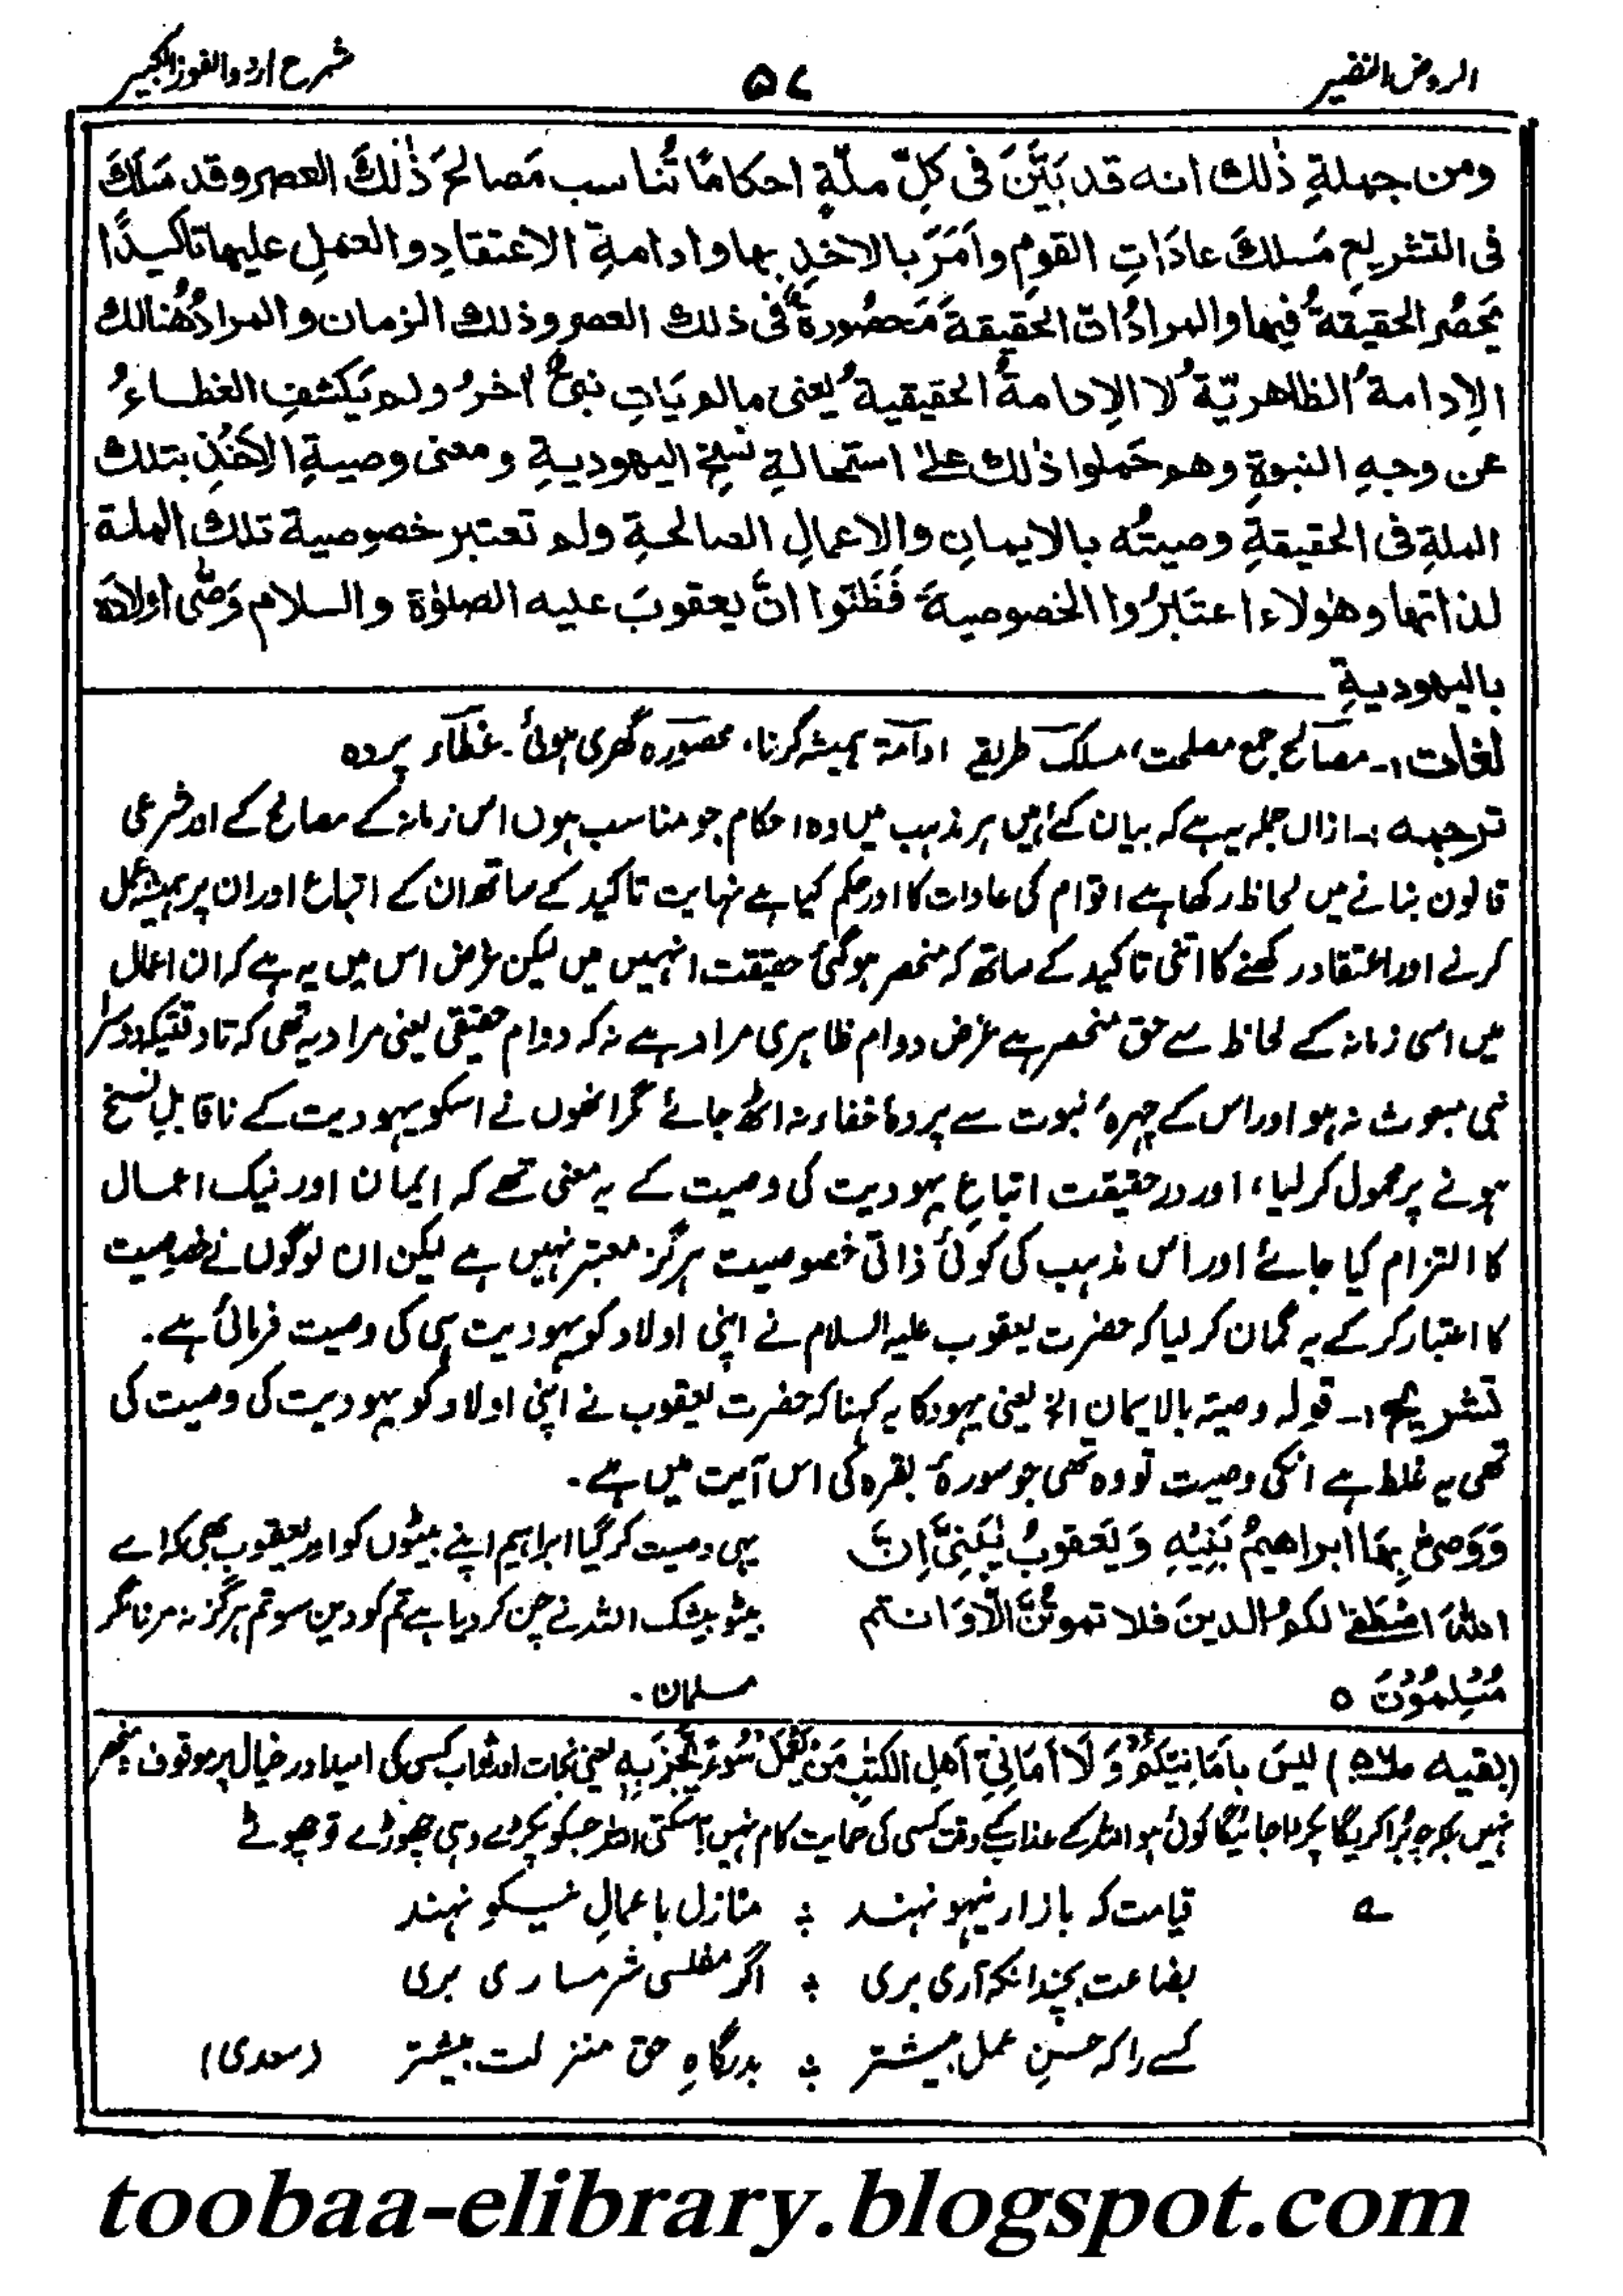 الروض النضیر
۵۷
شرح اردو الفوز الکبیر
ومن جملةِ ذٰلك انه قد بَيَّنَ فى كلِّ ملّةٍ احكامًا تُناسب مَصالحَ ذٰلكَ العصر وقد سَلَكَ
فى التشريعِ مَسلكَ عادَاتِ القومِ وأمَرَ بالاخذِ بها وادامةِ الاعتقادِ والعملِ عليها تاكيدًا
يَحصُر الحقيقةُ فيها والمرادُ انّ الحقيقةَ مَحصُورةٌ فى ذلك العصر وذلك الزمان والمرادُ هُنالك
الاِدامةُ الظاهريّةُ لا الاِدامةُ الحقيقيةُ يعنى مالم يَاتِ نبىٌّ اٰخرُ ولم يَكشفِ الغطاءُ
عن وجهِ النبوةِ وهم حَملوا ذٰلك علىٰ استحالةِ نسخِ اليهوديةِ ومعنى وصيةِ الاَخذِ بتلك
الملةِ فى الحقيقةِ وصيتُه بالايمانِ والاعمالِ الصالحةِ ولم تعتبر خصوصية تلك الملة
لذاتها وهٰولاء اعتَبرُوا الخصوصيةَ فَظَنّوا انَّ يعقوبَ عليه الصلوٰة والسلام وَصّٰى اولادَه
باليهوديةِ
لغات:۔ مصالح جمع مصلحت، مسلک طریقے ادامۃ ہمیشہ کرنا، محصورہ گھری ہوئی۔ غطاء پردہ
ترجمہ:۔ ازاں جملہ یہ ہے کہ بیان کئے ہیں ہر مذہب میں وہ احکام جو مناسب ہوں اس زمانہ کے مصالح کے اور شرعی
قانون بنانے میں لحاظ رکھا ہے اقوام کی عادات کا اور حکم کیا ہے نہایت تاکید کے ساتھ ان کے اتباع اور ان پر ہمیشہ عمل
کرنے اور اعتقاد رکھنے کا اتنی تاکید کے ساتھ کہ منحصر ہوگئی حقیقت انہیں میں لیکن غرض اس میں یہ ہے کہ ان اعمال
میں اسی زمانہ کے لحاظ سے حق منحصر ہے غرض دوام ظاہری مراد ہے نہ کہ دوام حقیقی یعنی مراد یہ تھی کہ تاوقتیکہ دوسرا
نبی مبعوث نہ ہو اور اس کے چہرۂ نبوت سے پردۂ خفاء نہ اٹھ جائے مگر انھوں نے اسکو یہودیت کے ناقابلِ نسخ
ہونے پر محمول کرلیا، اور درحقیقت اتباعِ یہودیت کی وصیت کے یہ معنی تھے کہ ایمان اور نیک اعمال
کا التزام کیا جائے اور اس مذہب کی کوئی ذاتی خصوصیت ہرگز معتبر نہیں ہے لیکن ان لوگوں نے خصوصیت
کا اعتبار کر کے یہ گمان کرلیا کہ حضرت یعقوب علیہ السلام نے اپنی اولاد کو یہودیت ہی کی وصیت فرمائی ہے۔
تشریح:۔ قولہ وصیتہ بالایمان الخ یعنی یہود کا یہ کہنا کہ حضرت یعقوب نے اپنی اولاد کو یہودیت کی وصیت کی
تھی یہ غلط ہے انکی وصیت تو وہ تھی جو سورۂ بقرہ کی اس آیت میں ہے۔
وَوَصىّٰ بِهَا ابراهيمُ بَنِيْهِ وَيَعقوبُ يٰبَنِيَّ اِنَّ
یہی وصیت کر گیا ابراہیم اپنے بیٹوں کو اور یعقوب بھی کہ اے
اللهَ اصْطَفٰ لكمُ الدينَ فلا تموتُنَّ الّا وَانتم
بیٹو بیشک اللہ نے چن کر دیا ہے تم کو دین سو تم ہرگز نہ مرنا مگر
مُّسْلِمُوْنَ ٥
مسلمان۔
(بقیہ ص۵۶) لیسَ بِاَمَانِيّكُمْ وَلَا اَمَانِيّ اَهلِ الكتٰبِ مَن يَّعْمَلْ سُوْءً يُّجْزَ بِهٖ یعنی نجات اور ثواب کسی کی امید اور خیال پر موقوف و منحصر
نہیں بلکہ جو برا کریگا پکڑا جائیگا کوئی ہو اللہ کے عذاب کے وقت کسی کی حمایت کام نہیں آسکتی اللہ جسکو پکڑے وہی چھوڑے تو چھوٹے
؎ قیامت کہ بازار نیہو نہند ؛ منازل باعمالِ نیکو نہند
بضاعت بچندانکہ آری بری ؛ اگر مفلسی شرمساری بری
کسے را کہ حسنِ عمل بیشتر ؛ بدرگاہِ حق منزلت بیشتر (سعدی)
toobaa-elibrary.blogspot.com